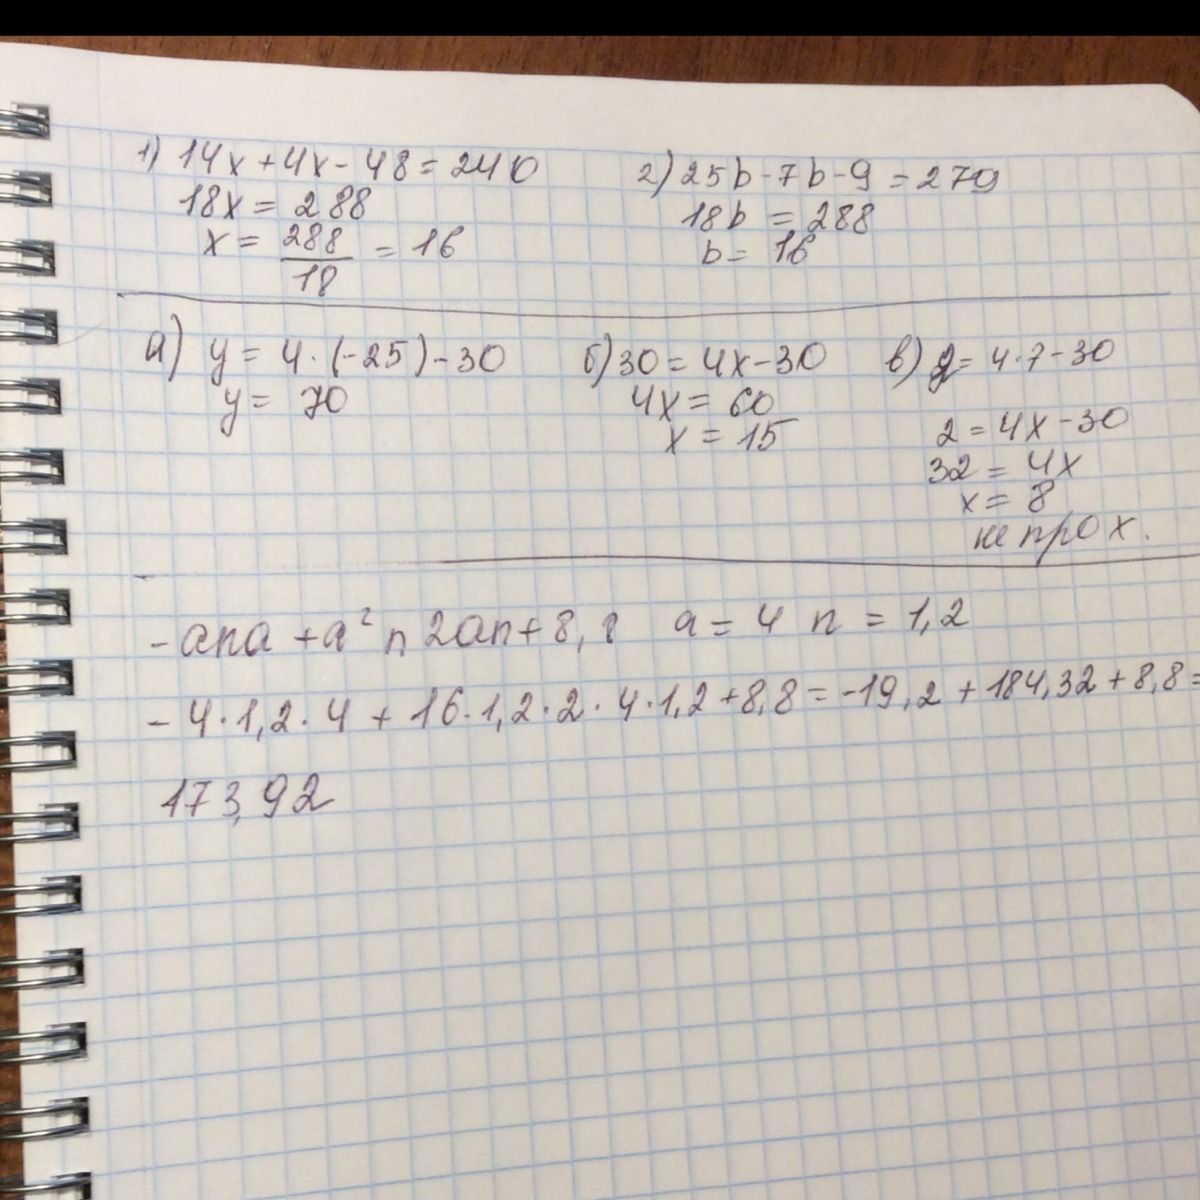 1) 14x + 4x - 48 = 240
18x = 288
x = 288/18 = 16
2) 25b - 7b - 9 = 279
18b = 288
b = 16
а) y = 4 · (-25) - 30
y = 70
б) 30 = 4x - 30
4x = 60
x = 15
в) = 4 · 7 - 30
2 = 4x - 30
32 = 4x
x = 8
не прох.
- ana + a² n 2an + 8, 8 a = 4 n = 1,2
- 4 · 1,2 · 4 + 16 · 1,2 · 2 · 4 · 1,2 + 8,8 = -19,2 + 184,32 + 8,8 =
173,92